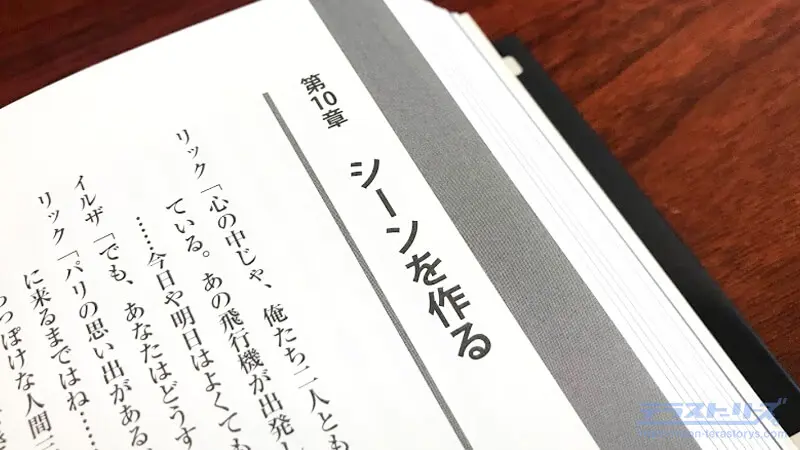 第10章
シーンを作る
リック「心の中じゃ、俺たち二人とも
ている。あの飛行機が出発し
……今日や明日はよくても
イルザ「でも、あなたはどうす
リック「パリの思い出がある、
に来るまではね……
っぽけな人間三
テラストーリーズ